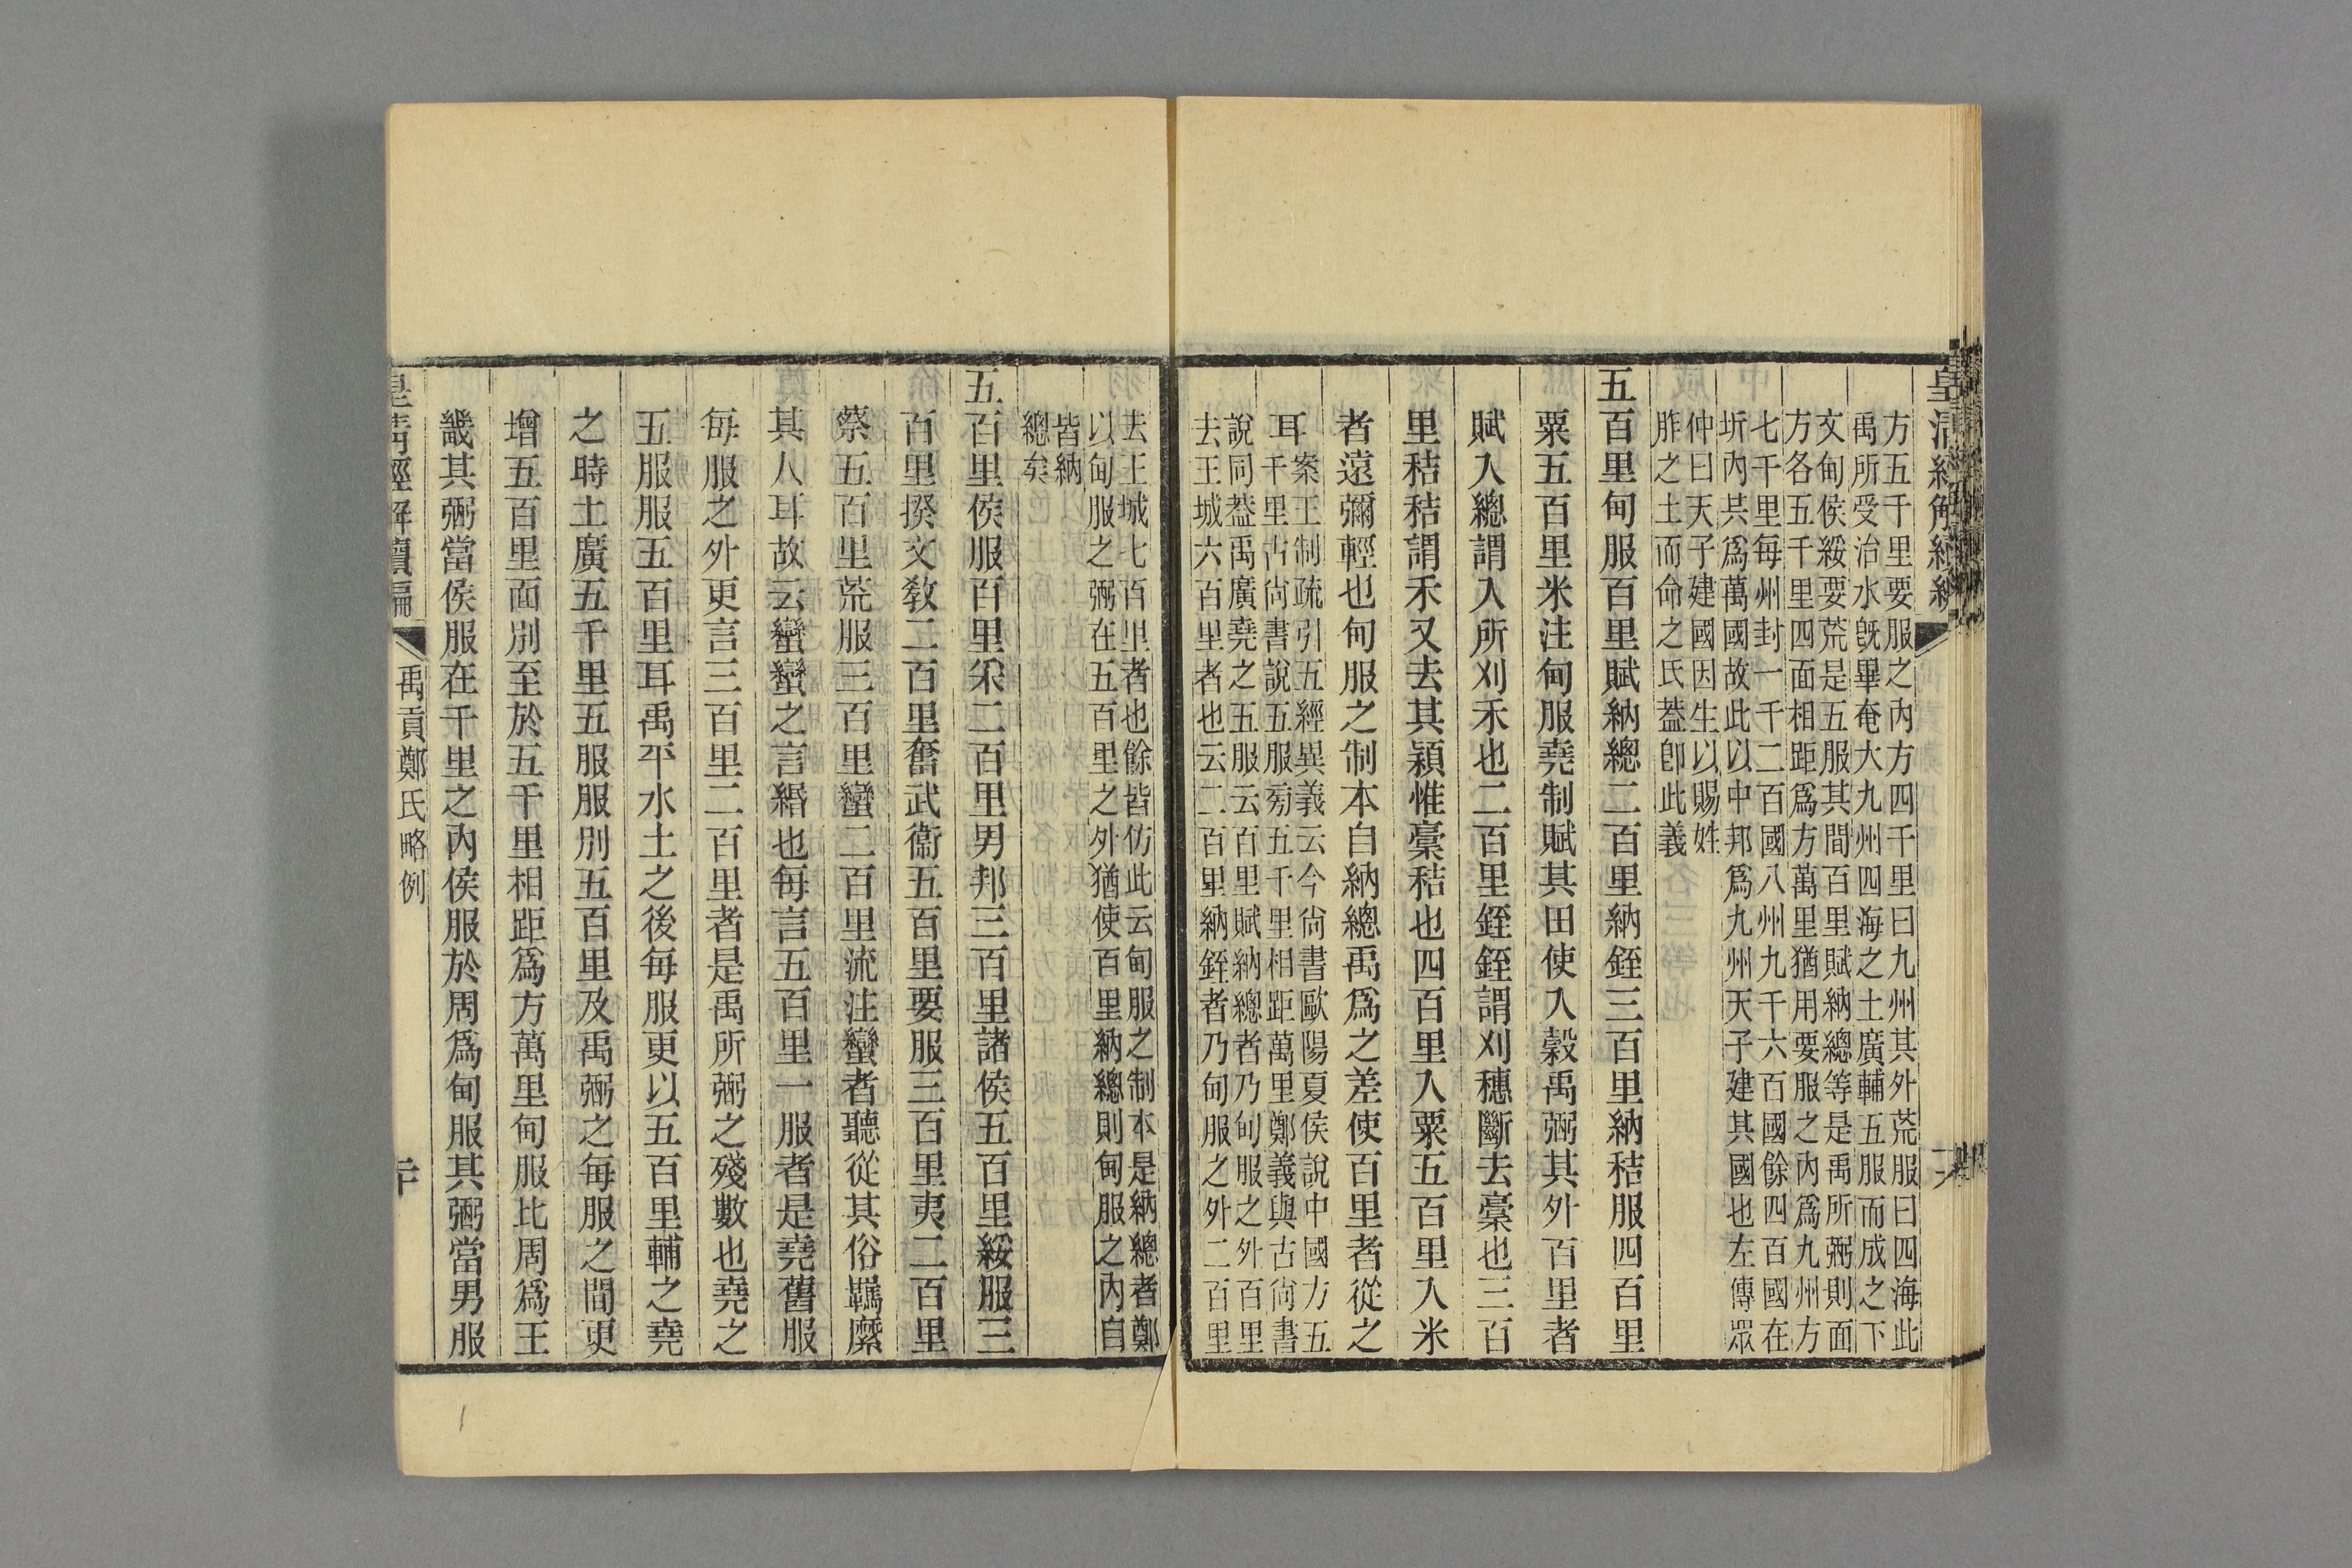 皇清經解
方五千里要服之內方四千里曰九州其外荒服曰四海此
禹所受治水旣畢奄大九州四海之土廣輔五服而成之下
文甸侯綏要荒是五服其間百里賦納總等是禹所弼則面
方各五千里四面相距爲方萬里猶用要服之內爲九州方
七千里每州封一千二百國八州九千六百國餘四百國在
圻內共爲萬國故此以中邦爲九州天子建其國也左傳眾
仲曰天子建國因生以賜姓
胙之土而命之氏葢卽此義
五百里甸服百里賦納總二百里納銍三百里納秸服四百里
粟五百里米注甸服堯制賦其田使入穀禹弼其外百里者
賦入總謂入所刈禾也二百里銍銍謂刈穗斷去稾也三百
里秸秸謂禾又去其穎惟稾秸也四百里入粟五百里入米
者遠彌輕也甸服之制本自納總禹爲之差使百里者從之
耳案王制疏引五經異義云今尙書歐陽夏侯說中國方五
千里古尙書說五服㫄五千里相距萬里鄭義與古尙書
說同葢禹廣堯之五服云百里賦納總者乃甸服之外百里
去王城六百里者也云二百里納銍者乃甸服之外二百里
去王城七百里者也餘皆仿此云甸服之制本是納總者鄭
以甸服之弼在五百里之外猶使百里納總則甸服之內自
皆納
總矣
五百里侯服百里采二百里男邦三百里諸侯五百里綏服三
百里揆文敎二百里奮武衞五百里要服三百里夷二百里
蔡五百里荒服三百里蠻二百里流注蠻者聽從其俗羈縻
其人耳故云蠻蠻之言緡也每言五百里一服者是堯舊服
每服之外更言三百里二百里者是禹所弼之殘數也堯之
五服服五百里耳禹平水土之後每服更以五百里輔之堯
之時土廣五千里五服服別五百里及禹弼之每服之間更
增五百里面別至於五千里相距爲方萬里甸服比周爲王
畿其弼當侯服在千里之內侯服於周爲甸服其弼當男服
皇淸經解續編
禹貢鄭氏略例